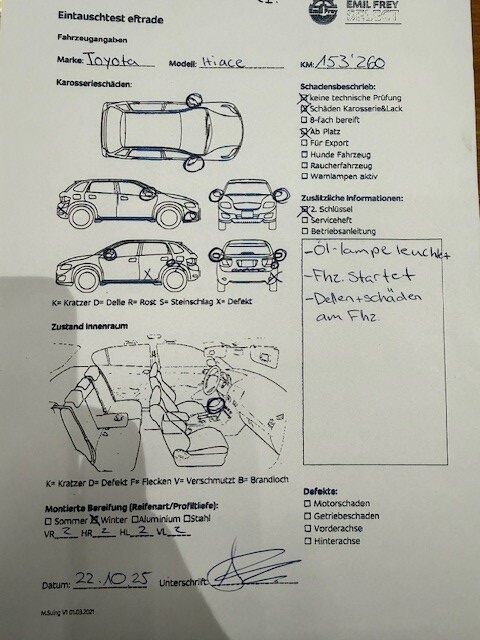 EMIL FREY
SELECT
Emil Frey
Eintauschtest eftrade
Fahrzeugangaben
Marke: Toyota Modell: Hiace KM: 153'260
Karosserieschäden:
Schadensbeschrieb:
☒ keine technische Prüfung
☒ Schäden Karosserie&Lack
☐ 8-fach bereift
☒ Ab Platz
☐ Für Export
☐ Hunde Fahrzeug
☐ Raucherfahrzeug
☐ Warnlampen aktiv
Zusätzliche Informationen:
☒ 2. Schlüssel
☐ Serviceheft
☐ Betriebsanleitung
- Öl-lampe leuchtet
- Fhz. Startet
- Dellen+schäden
am Fhz.
X X
K= Kratzer D= Delle R= Rost S= Steinschlag X= Defekt
Zustand Innenraum
K= Kratzer D= Defekt F= Flecken V= Verschmutzt B= Brandloch
Montierte Bereifung (Reifenart/Profiltiefe):
☐ Sommer ☒ Winter ☐ Aluminium ☐ Stahl
VR 2 HR 2 HL 2 VL 2
Defekte:
☐ Motorschaden
☐ Getriebeschaden
☐ Vorderachse
☐ Hinterachse
Datum: 22.10.25 Unterschrift:
M.Suing V1 01.03.2021